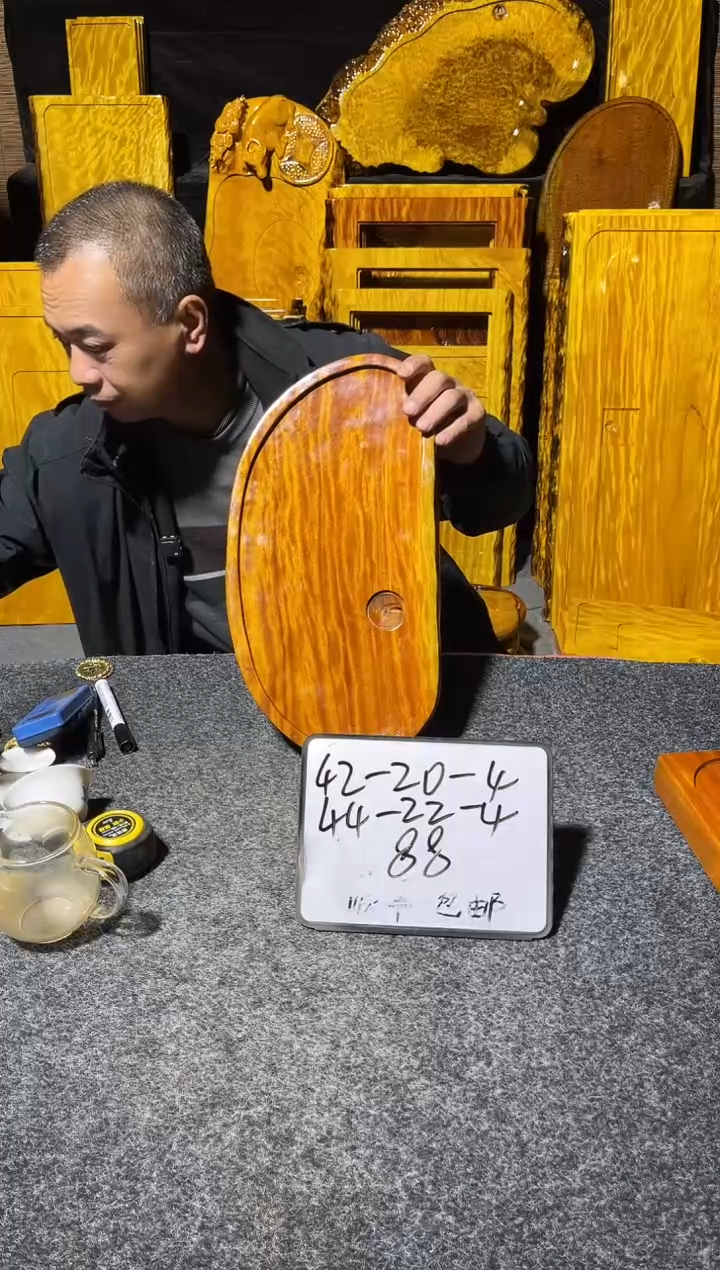 42-20-4
44-22-4
88
包邮